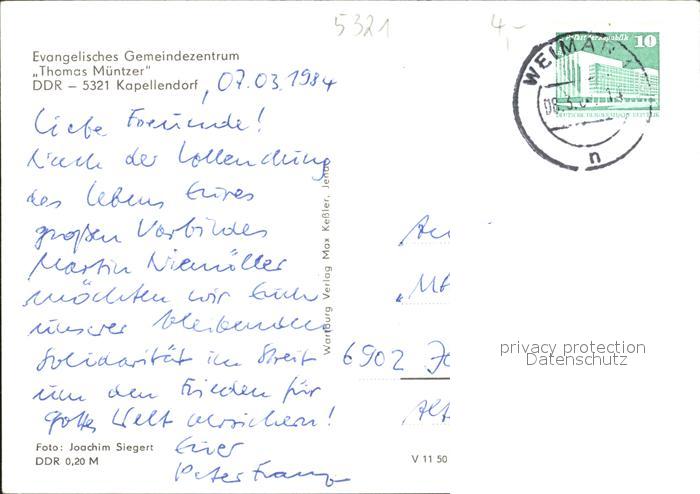 5321
4,-
Evangelisches Gemeindezentrum
„Thomas Müntzer"
DDR – 5321 Kapellendorf, 07.03.1984
Liebe Freunde!
Nach der Vollendung
des Lebens Eures
großen Vorbildes
Martin Niemöller
möchten wir Euch
unserer bleibenden
Solidarität im Streit
um den Frieden für
Gottes Welt versichern!
Euer
Peter Franz
Foto: Joachim Siegert
DDR 0,20 M
V 11 50
Wartburg Verlag Max Keßler, Jena
WEIMAR 1
n
10
DEUTSCHE DEMOKRATISCHE REPUBLIK
An
6902
privacy protection
Datenschutz